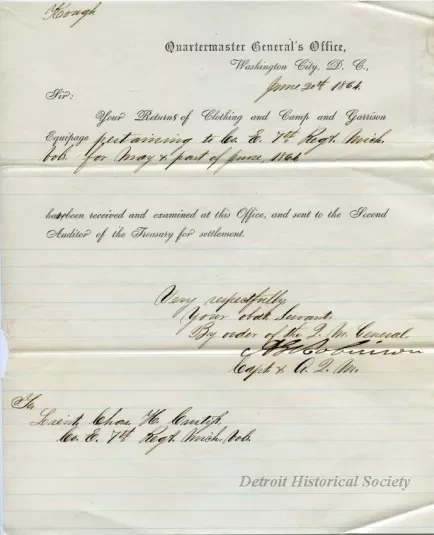 Hough
Quartermaster General's Office,
Washington City, D. C.,
June 20th 1864
Sir:
Your Returns of Clothing and Camp and Garrison
Equipage pertaining to Co. E. 7th Regt. Mich.
Vols. for May & part of June, 1864
have been received and examined at this Office, and sent to the Second
Auditor of the Treasury for settlement.
Very respectfully
Your obdt. Servant,
By order of the Q. M. General.
Robinson
Capt & A. Q. M.
To
Lieut. Chas. H.
Co. E. 7th Regt. Mich. Vols.
Detroit Historical Society